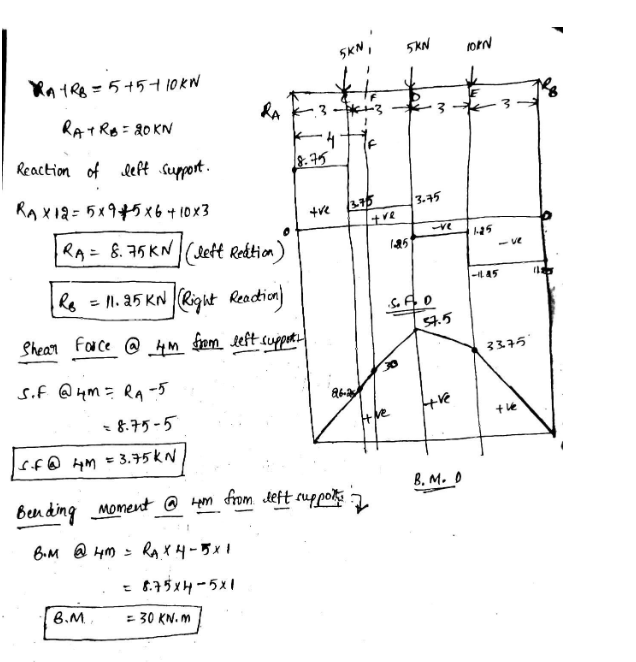 RA + RB = 5 + 5 + 10 KN
RA + RB = 20 KN
Reaction of left support.
RA X 12 = 5 x 9 + 5 x 6 + 10 x 3
RA = 8.75 KN (left Rection)
RB = 11.25 KN (Right Reaction)
Shear Force @ 4m from left support
S.F @ 4m = RA - 5
= 8.75 - 5
S.F @ 4m = 3.75 KN
Bending moment @ 4m from left support :
B.M @ 4m = RA X 4 - 5 x 1
= 8.75 x 4 - 5 x 1
B.M. = 30 KN.m
5KN 5KN 10KN
RA C F D E RB
3 3 3 3
4 F
8.75
+ve 3.75 +ve 3.75
0 1.25 -ve 1.25 -ve 0
-11.25 11.25
S.F.D
37.5
33.75
30
26.25
+ve +ve +ve
B.M.D